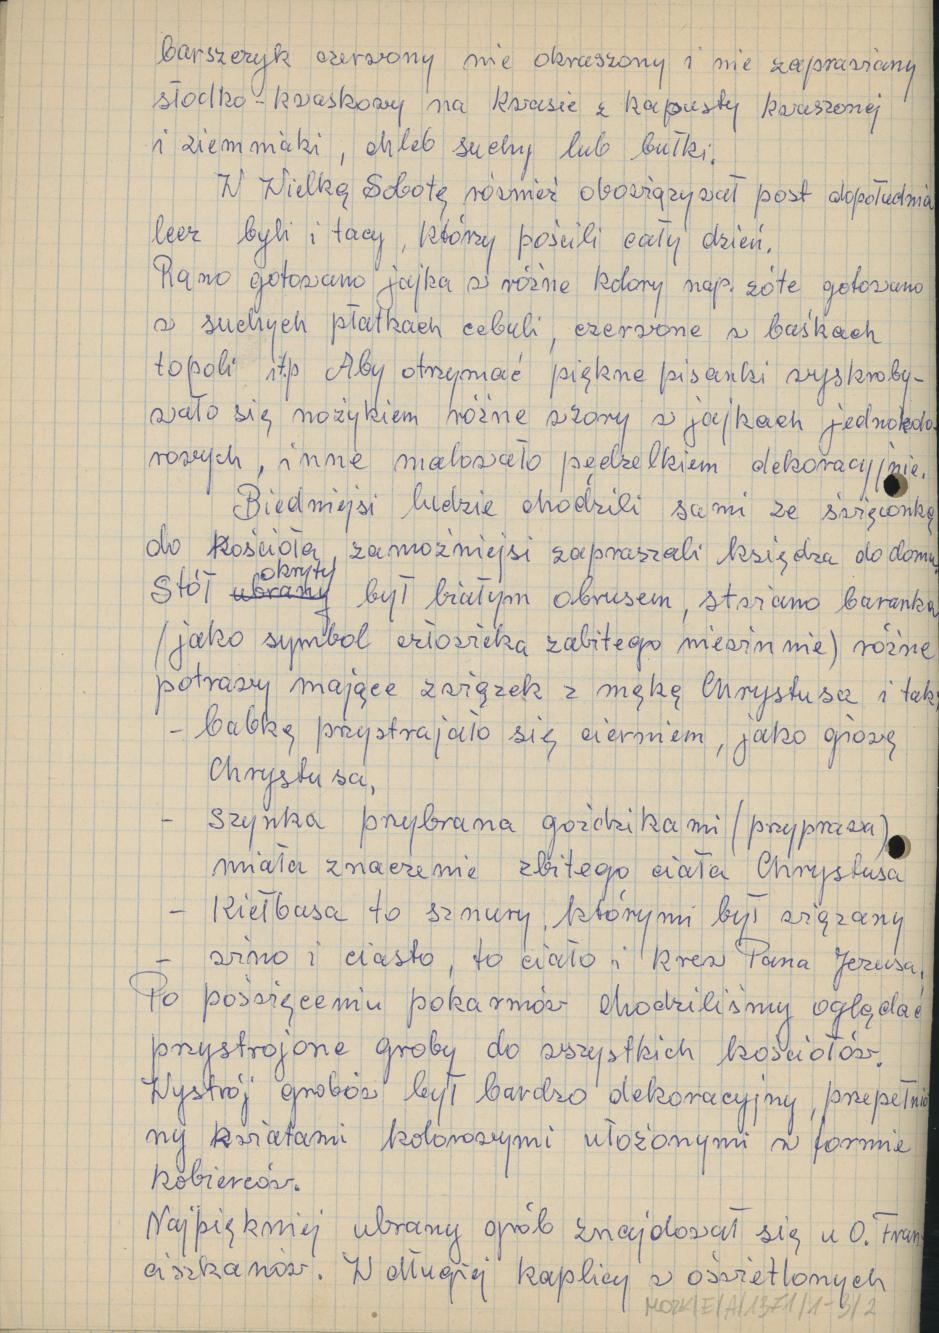 barszczyk czerwony nie okraszony i nie zaprawiany
słodko-kwaskowy na kwasie z kapusty kwaszonej
i ziemniaki, chleb suchy lub bułki.
W Wielką Sobotę również obowiązywał post dopołudnia
lecz byli i tacy, którzy pościli cały dzień.
Rano gotowano jajka w różne kolory nap. żółte gotowano
w suchych płatkach cebuli, czerwone w baśkach
topoli itp Aby otrzymać piękne pisanki wyskroby-
wało się nożykiem różne wzory w jajkach jednokolo-
rowych, inne malowało pędzelkiem dekoracyjnie.
Biedniejsi ludzie chodzili sami ze święconką
do kościoła, zamożniejsi zapraszali księdza do domu.
okryty
Stół ubrany był białym obrusem, stwiano baranka
(jako symbol człowieka zabitego niewinnie) różne
potrawy mające związek z męką Chrystusa i tak,
- babkę przystrajało się cierniem, jako głowę
Chrystusa,
- szynka przybrana goździkami (przyprawa)
miała znaczenie zbitego ciała Chrystusa
- Kiełbasa to sznury, którymi był związany
- wino i ciasto, to ciało i krew Pana Jezusa.
Po poświęceniu pokarmów chodziliśmy oglądać
przystrojone groby do wszystkich kościołów.
Wystrój grobów był bardzo dekoracyjny, przepełnio
ny kwiatami kolorowymi ułożonymi w formie
kobierców.
Najpiękniej ubrany grób znajdował się u O. Fran-
ciszkanów. W długiej kaplicy w oświetlonych
MOZK/E/A/1371/1-3/2